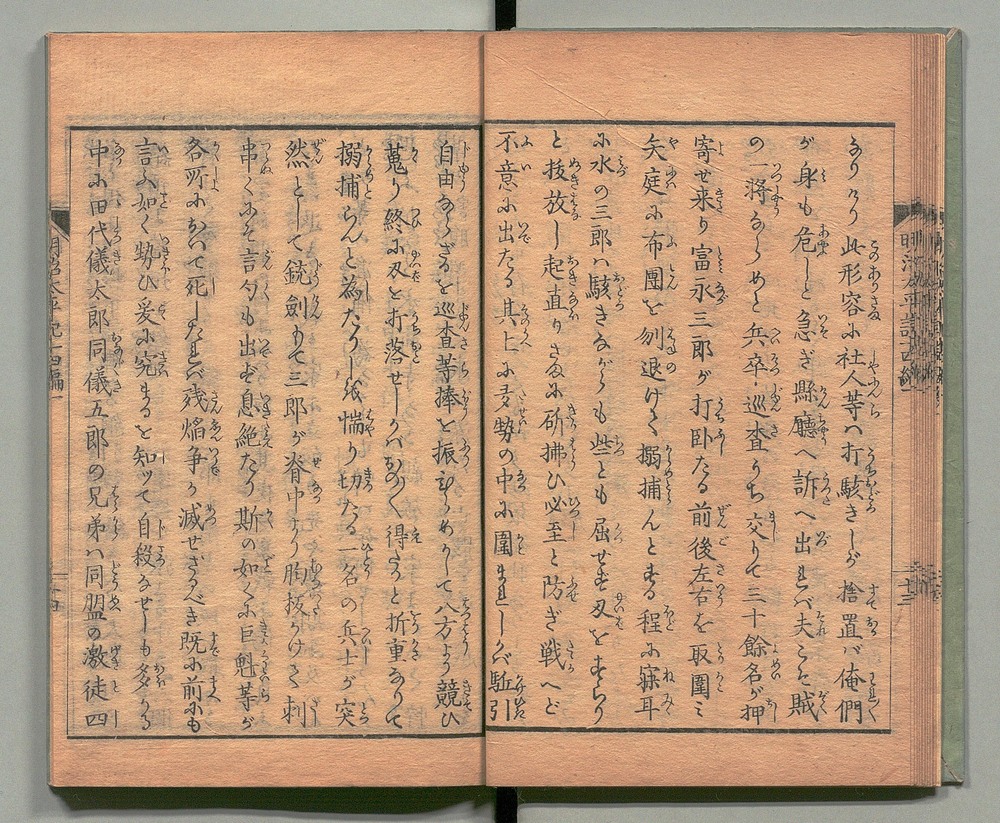 なりけり此形容に社人等ハ打駭きしが捨置バ俺們
が身も危しと急ぎ縣廳へ訴へ出れバ夫こそ賊
の一將ならめと兵卒巡査うち交りて三十餘名が押
寄せ来り富永三郎が打卧たる前後左右を取圍ミ
矢庭に布團を刎退けて搦捕んとする程に寐耳
に水の三郎ハ駭きながらも些とも屈せず刄をすらり
と抜放し起直りさまに斫拂ひ必至と防ぎ戦へど
不意に出たる其上に多勢の中に圍まれしかバ駈引
自由ならざるを巡査等捧を振ひらめかして八方より競ひ
蒐り終に刄を打落せしかバおの〳〵得たりと折重なりて
搦捕らんと為たりしを惴り切たる一名の兵士が突
然として銃劍もて三郎が脊中より胸板かけて刺
串くにぞ言句も出ず息絶たり斯の如くに巨魁等が
各所において死したれバ残焔争か滅せざるべき既に前にも
言ふ如く勢ひ爰に究まるを知ツて自殺なせしも多かる
中に田代儀太郎同儀五郎の兄弟ハ同盟の激徒四
明治太平記十四編一